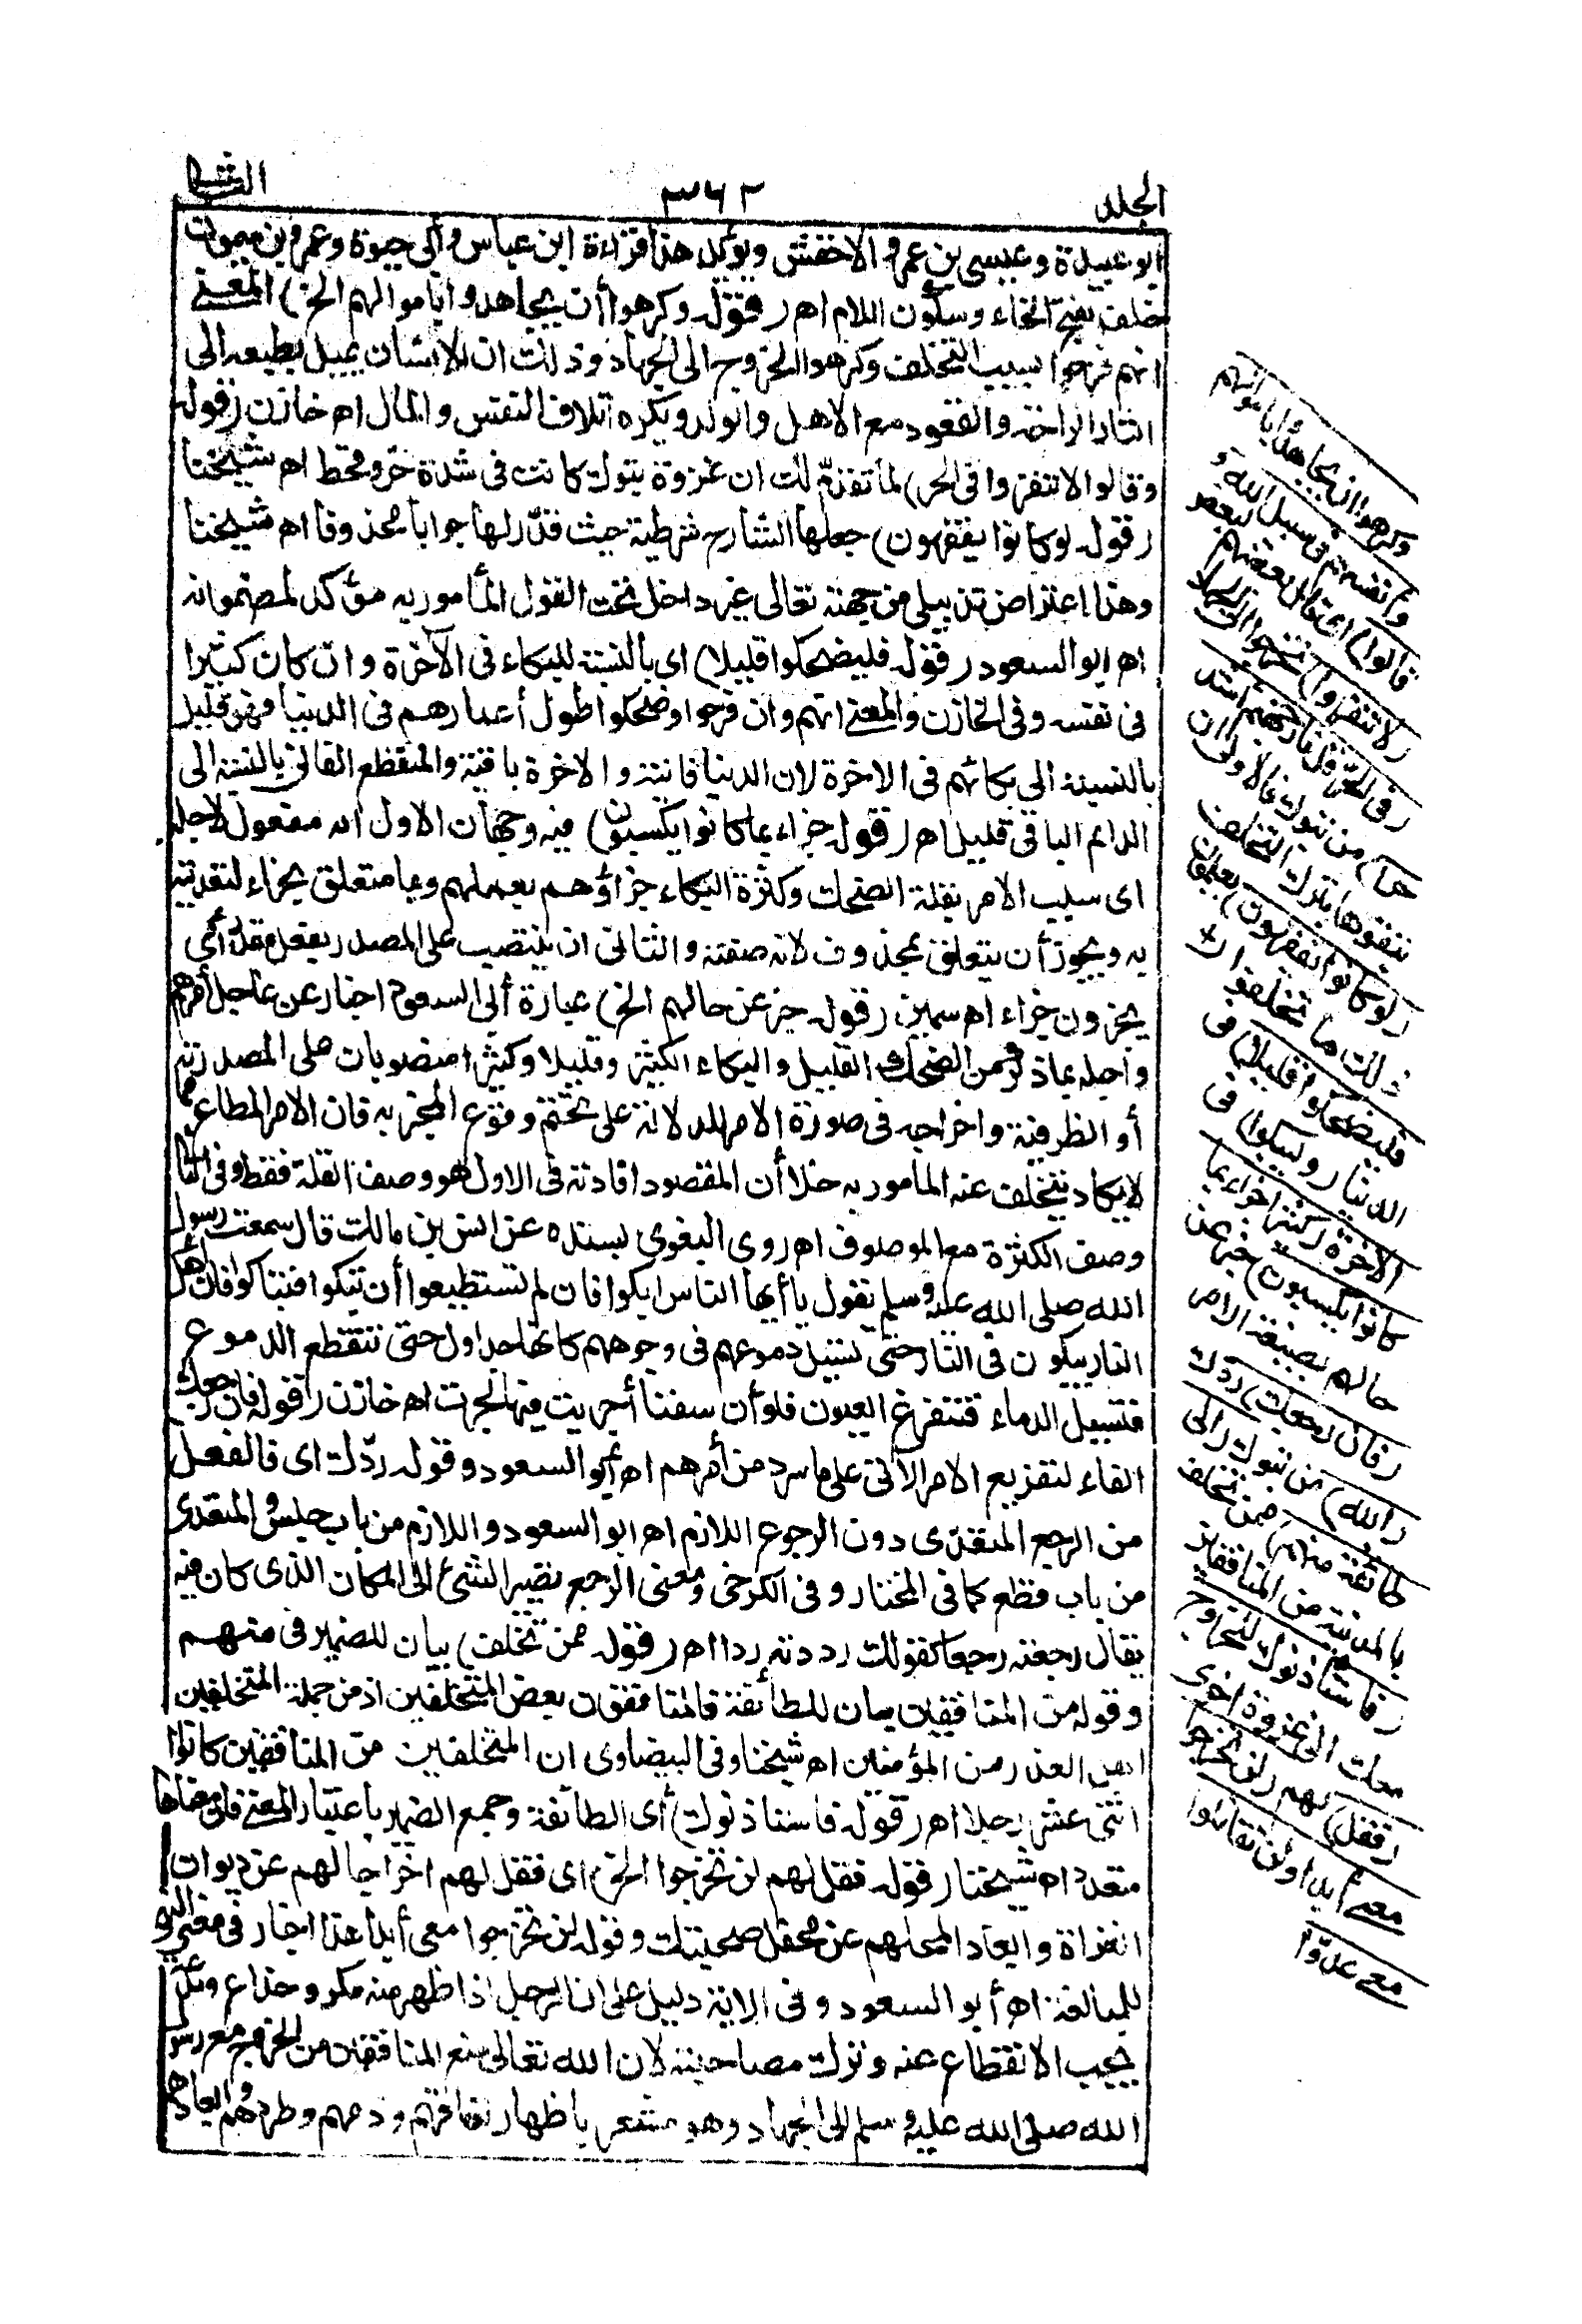 الجلد
٣٦٢
الثانى
ابو عبيدة وعيسى بن عمر والاخفش ويؤكد هذا قراءة ابن عباس وأبى حيوة وعمرو بن ميمون
خلف بفتح الخاء وسكون اللام اهـ (قوله وكرهوا أن يجاهدوا باموالهم الخ) المعنى
انهم فرحوا بسبب التخلف وكرهوا الخروج الى الجهاد وذلك ان الانسان يميل بطبعه الى
ايثار الراحة والقعود مع الاهل والولد ويكره اتلاف النفس والمال اهـ خازن (قوله
وقالوا لا تنفروا فى الحر) لما تقدم لك ان غزوة تبوك كانت فى شدة حر وقحط اهـ شيخنا
(قوله لو كانوا يفقهون) جعلها الشارح شرطية حيث قدّر لها جوابا محذوفا اهـ شيخنا
وهذا اعتراض تذييلى من جهته تعالى غير داخل تحت القول المأمور به مؤكد لمضمونه
اهـ ابو السعود (قوله فليضحكوا قليلا) اى بالنسبة للبكاء فى الآخرة وان كان كثيرا
فى نفسه وفى الخازن والمعنى انهم وان فرحوا وضحكوا طول أعمارهم فى الدنيا فهو قليل
بالنسبة الى بكائهم فى الاخرة لان الدنيا فانية والاخرة باقية والمنقطع الفانى بالنسبة الى
الدائم الباقى قليل اهـ (قوله جزاء بما كانوا يكسبون) فيه وجهان الاول انه مفعول لاجله
اى سبب الامر بقلة الضحك وكثرة البكاء جزاؤهم بعملهم وبما متعلق بجزاء لتعديته
به ويجوز أن يتعلق بمحذوف لانه صفته والثانى ان ينتصب على المصدر بفعل مقدر أى
يجزون جزاء اهـ سمين (قوله خبر عن حالهم الخ) عبارة أبى السعود اخبار عن عاجل أمرهم
واجله بما ذكر من الضحك القليل والبكاء الكثير وقليلا وكثيرا منصوبان على المصدرية
أو الظرفية واخراجه فى صورة الامر للدلالة على تحتم وقوع المخبر به فان الامر المطاع مما
لا يكاد يتخلف عنه المأمور به خلا أن المقصود افادته فى الاول هو وصف القلة فقط وفى الثانى
وصف الكثرة مع الموصوف اهـ روى البغوى بسنده عن انس بن مالك قال سمعت رسول
الله صلى الله عليه وسلم يقول يا أيها الناس ابكوا فان لم تستطيعوا أن تبكوا فتباكوا فان أهل
النار يبكون فى النار حتى تسيل دموعهم فى وجوههم كانها جداول حتى تنقطع الدموع
فتسيل الدماء فتتفرغ العيون فلو أن سفنا أجريت فيها لجرت اهـ خازن (قوله فان رجعك
الفاء لتفريع الامر الآتى على ما سرد من أمرهم اهـ أبو السعود وقوله ردّك اى فالفعل
من الرجع المتعدى دون الرجوع اللازم اهـ ابو السعود واللازم من باب جلس والمتعدى
من باب قطع كما فى المختار وفى الكرخى ومعنى الرجع تصيير الشئ الى المكان الذى كان فيه
يقال رجعته رجعا كقولك رددته ردا اهـ (قوله ممن تخلف) بيان للضمير فى منهم
وقوله من المنافقين بيان للطائفة فالمنافقون بعض المتخلفين اذ من جملة المتخلفين
اهل العذر من المؤمنين اهـ شيخنا وفى البيضاوى ان المتخلفين من المنافقين كانوا
اثنى عشر رجلا اهـ (قوله فاستاذنوك) أى الطائفة وجمع الضمير باعتبار المعنى فان معناها
متعدد اهـ شيخنا (قوله فقل لهم لن تخرجوا الخ) اى فقل لهم اخراجا لهم عن ديوان
الغزاة وابعادا لمحلهم عن محفل صحبتك وقوله لن تخرجوا معى أبدا هذا اخبار فى معنى النهى
للمبالغة اهـ أبو السعود وفى الاية دليل على ان الرجل اذا ظهر منه مكر وخداع وبدعة
يجب الانقطاع عنه وترك مصاحبته لان الله تعالى منع المنافقين من الخروج مع رسول
الله صلى الله عليه وسلم الى الجهاد وهو مشعر باظهار نفاقهم وذمهم وطردهم وابعادهم
وكرهوا ان يجاهدوا باموالهم
وأنفسهم فى سبيل الله و
قالوا) اى قال بعضهم لبعض
(لا تنفروا) تخرجوا الى الجهاد
(فى الحر قل نار جهنم أشد
حرا) من تبوك فالاولى ان
يتقوها بترك التخلف
(لو كانوا يفقهون) يعلمون
ذلك ما تخلفوا
فليضحكوا قليلا) فى
الدنيا (وليبكوا) فى
الاخرة (كثيرا جزاء بما
كانوا يكسبون) خبر عن
حالهم بصيغة الامر
(فان رجعك) ردك
(الله) من تبوك (الى
طائفة منهم) ممن تخلف
بالمدينة من المنافقين
(فاستأذنوك للخروج
معك) الى غزوة اخرى
(فقل) لهم (لن تخرجوا
معى أبدا ولن تقاتلوا
معى عدوّا